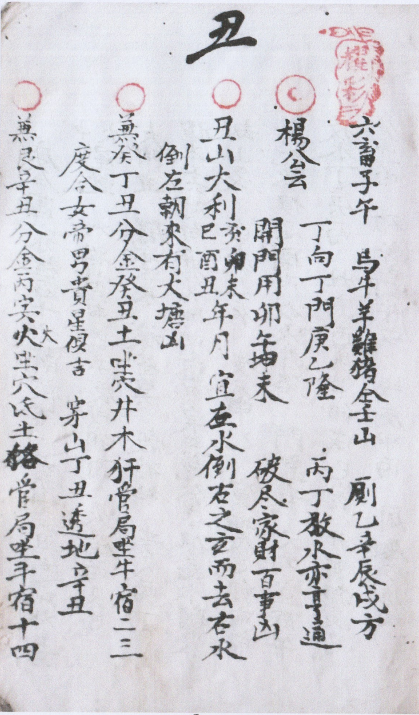 丑
六畜子午 馬牛羊雞猪全土山 厠乙辛辰戌方
丁向丁門庚乙隆 丙丁敖水亦亨通
楊公云 開門用卯午坤未 破尽家財百事凶
丑山大利亥卯未巳酉丑年月 宜左水倒右之玄而去右水
倒左朝來有大塘凶
兼癸丁丑分金癸丑土坐穴井木犴管局坐牛宿二三
度合女帝男貴星俱吉 穿山丁丑透地辛丑
兼艮辛丑分金丙寅火坐穴氐土貉管局坐斗宿十四